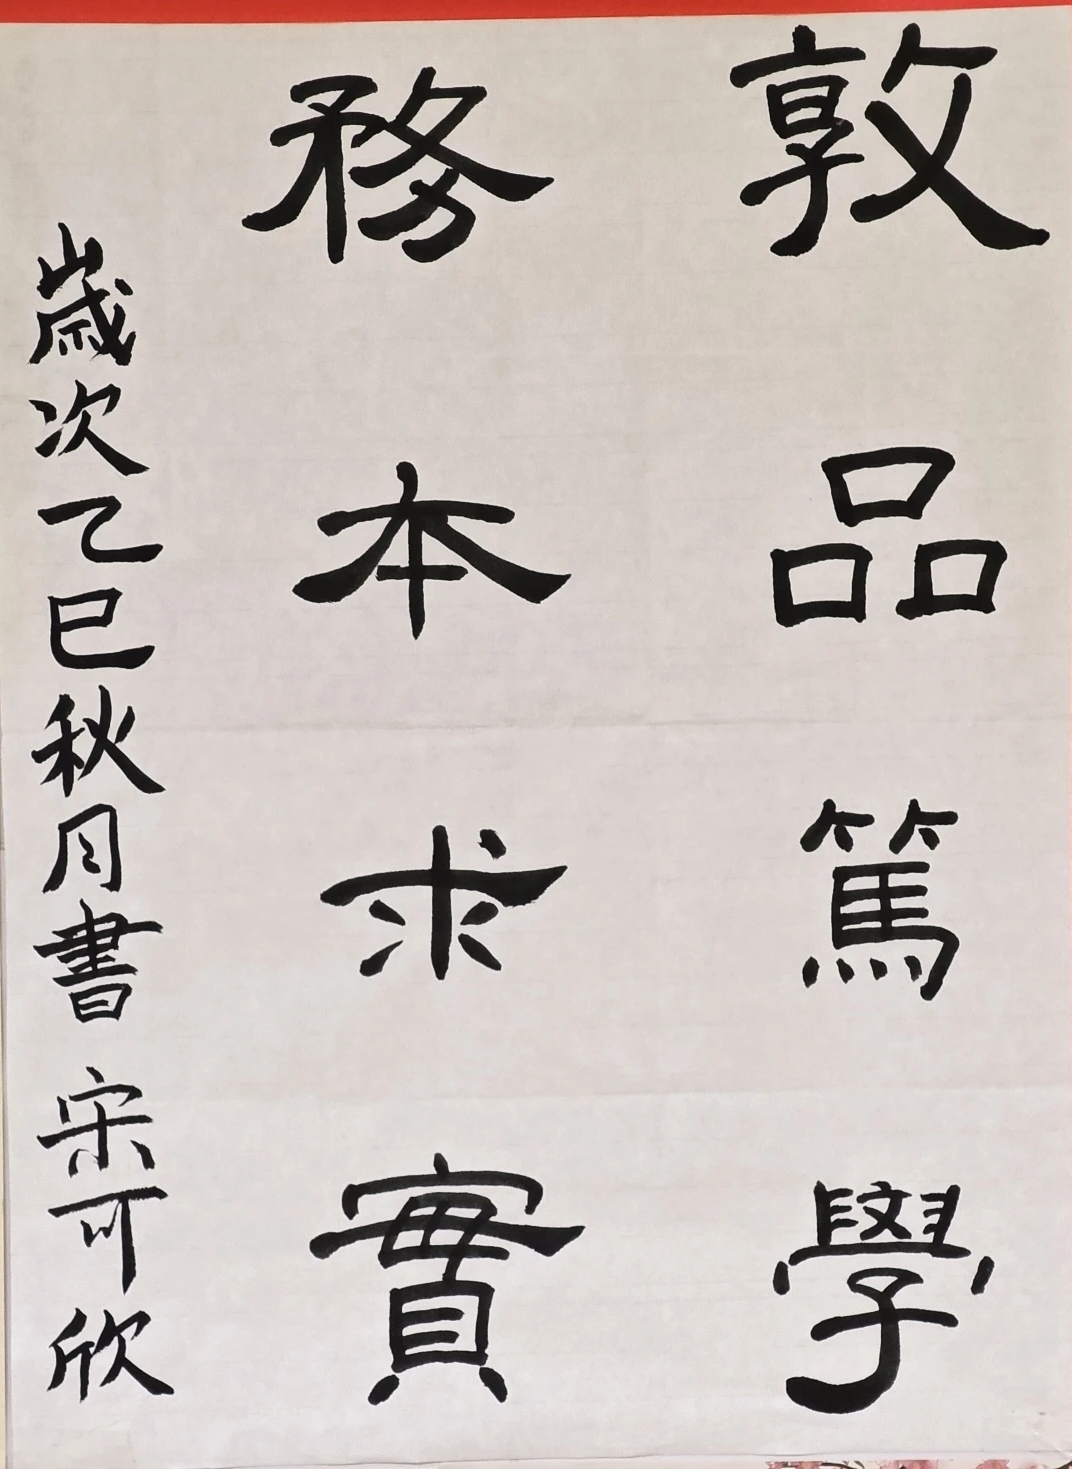 敦品篤學
務本求實
歲次乙巳秋月書 宋可欣